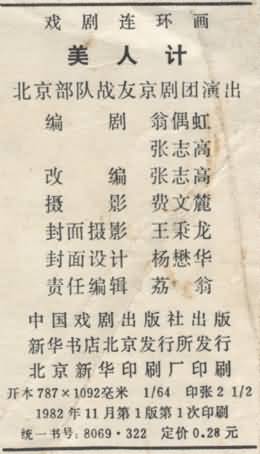 戏剧连环画
美人计
北京部队战友京剧团演出
编 剧 翁偶虹
张志高
改 编 张志高
摄 影 费文麓
封面摄影 王秉龙
封面设计 杨懋华
责任编辑 荔 翁
中国戏剧出版社出版
新华书店北京发行所发行
北京新华印刷厂印刷
开本787×1092毫米 1/64 印张2 1/2
1982年11月第1版第1次印刷
统一书号：8069·322 定价0.28元